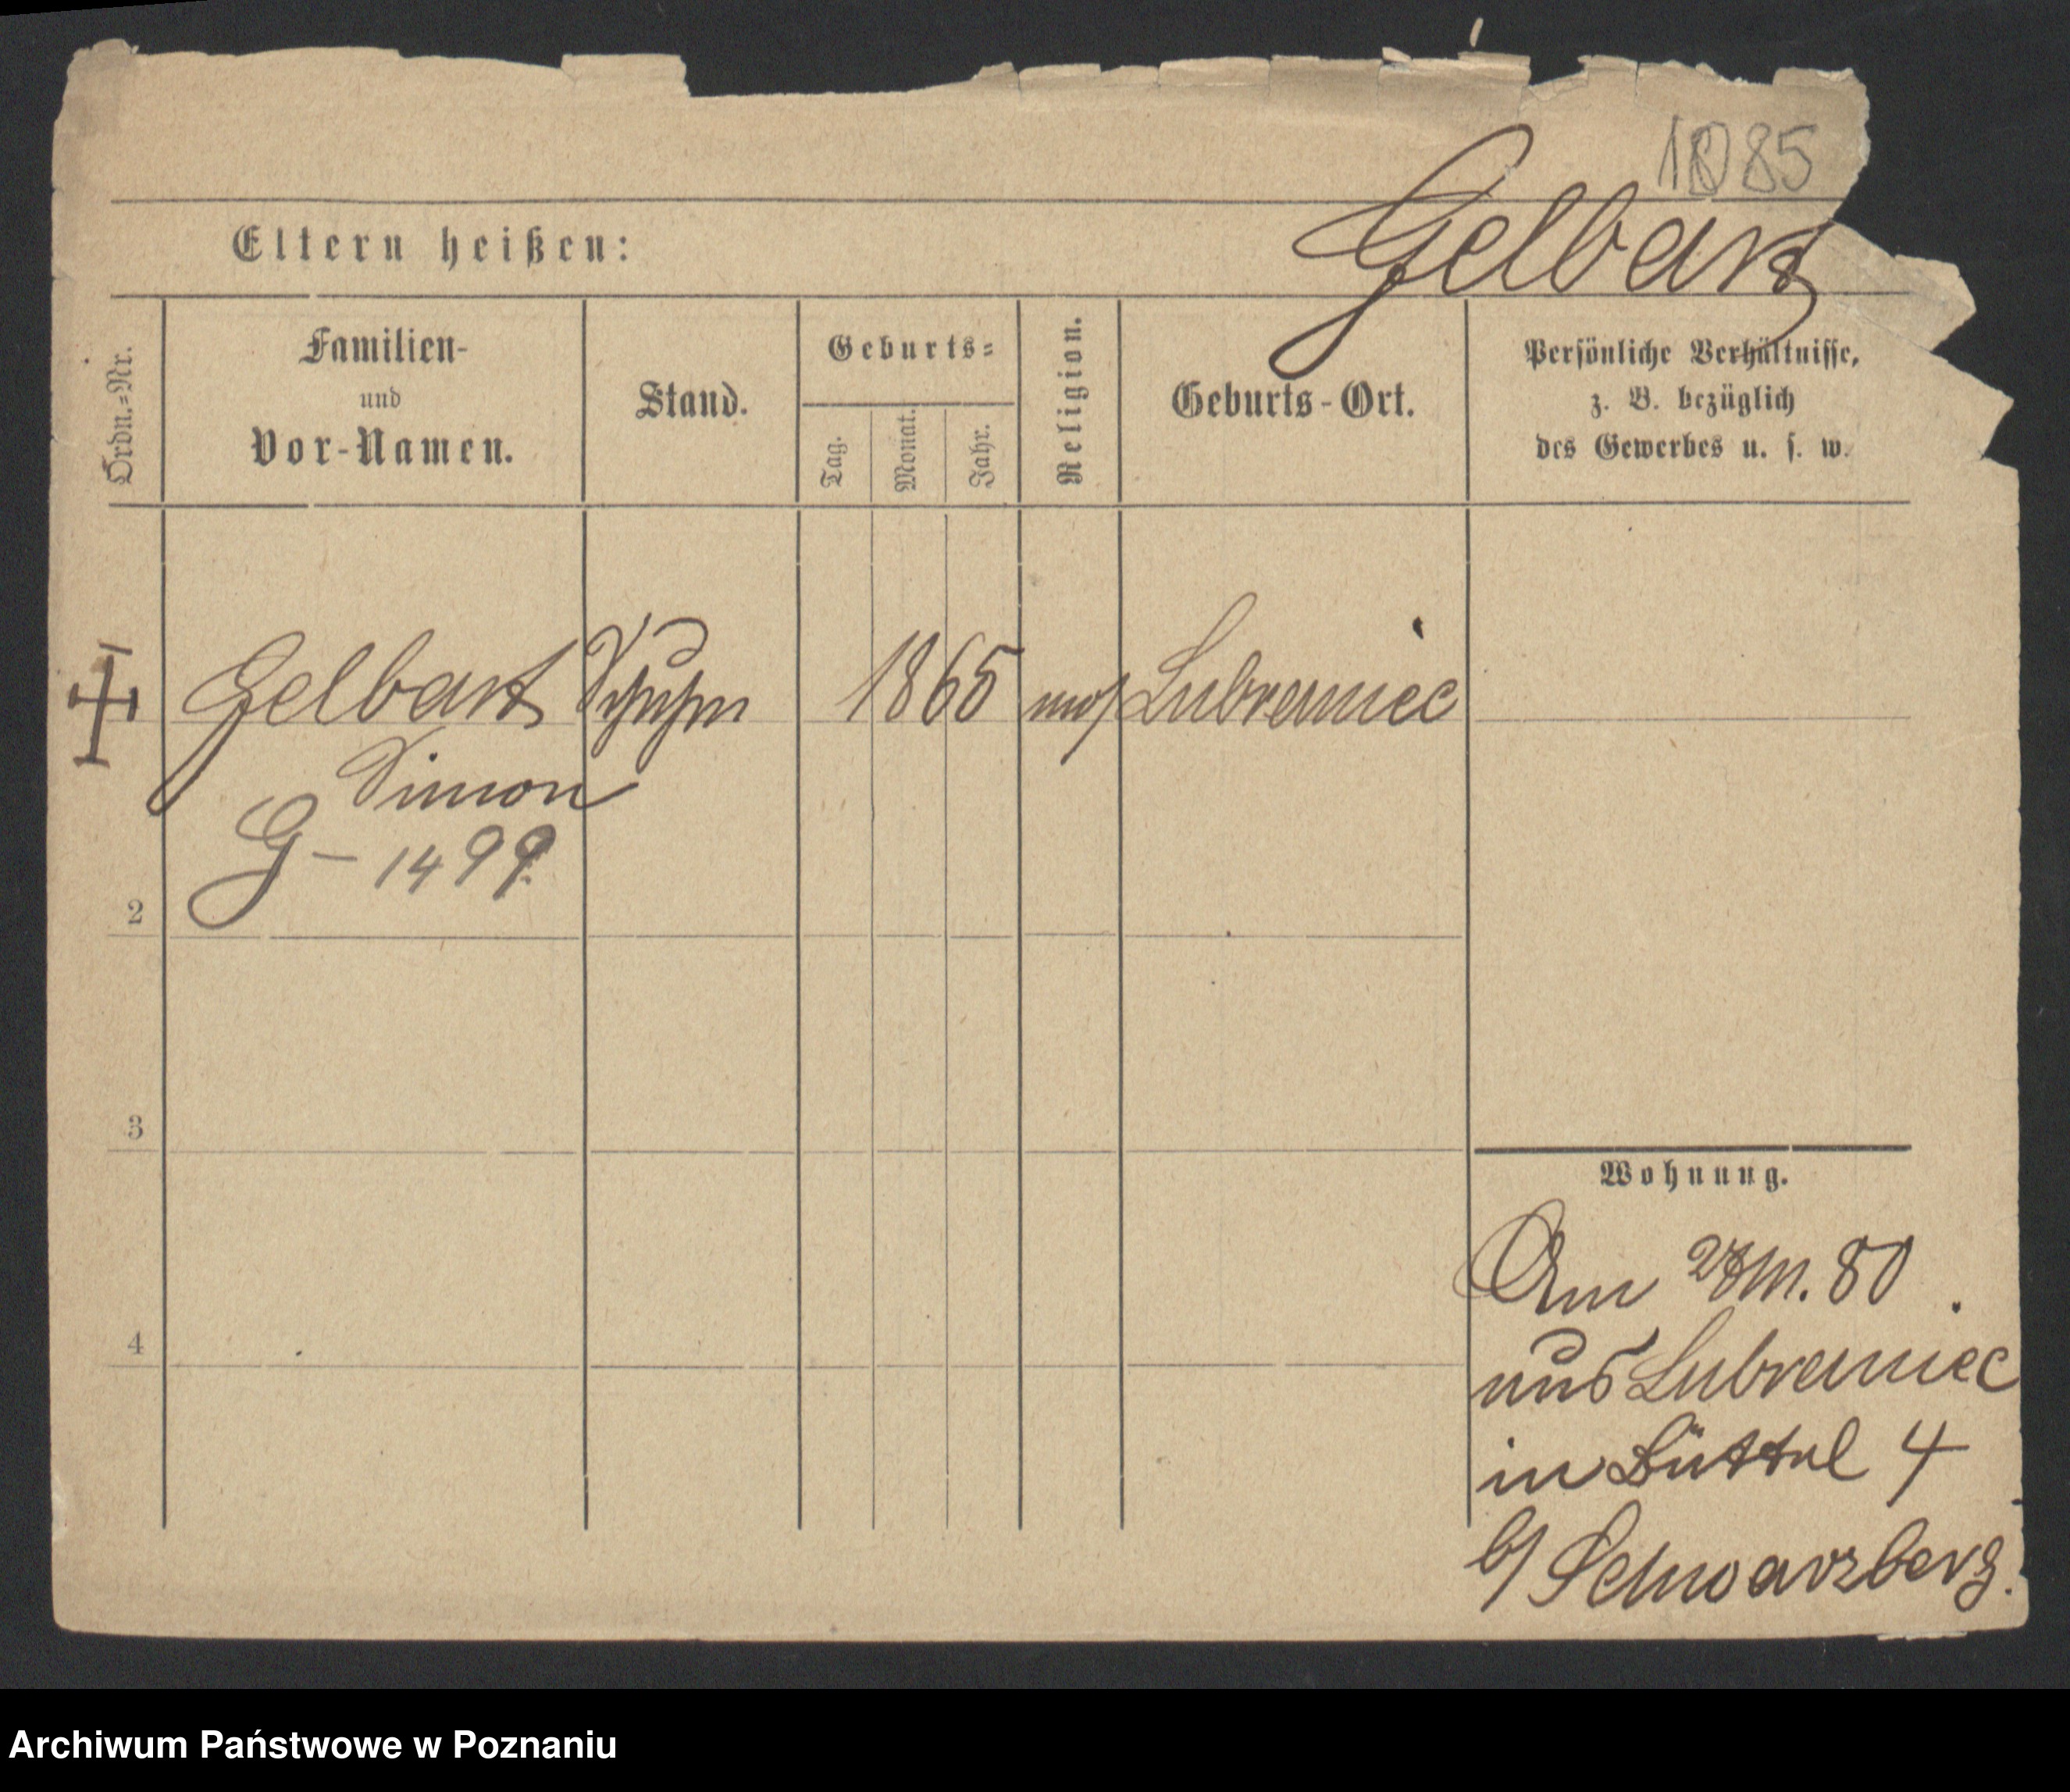 1085
Eltern heißen: Gelbart
Ordn.-Nr.
Familien-
und
Vor-Namen.
Stand.
Geburts-
Tag.
Monat.
Jahr.
Religion.
Geburts-Ort.
Persönliche Verhältnisse,
z. B. bezüglich
des Gewerbes u. s. w.
Gelbart Schuhm 1865 mos Lubraniec
Simon
G - 1499
2
3
4
Wohnung.
Am 80
aus Lubraniec
in Büttel 4
b/ Schwarzberg.
Archiwum Państwowe w Poznaniu